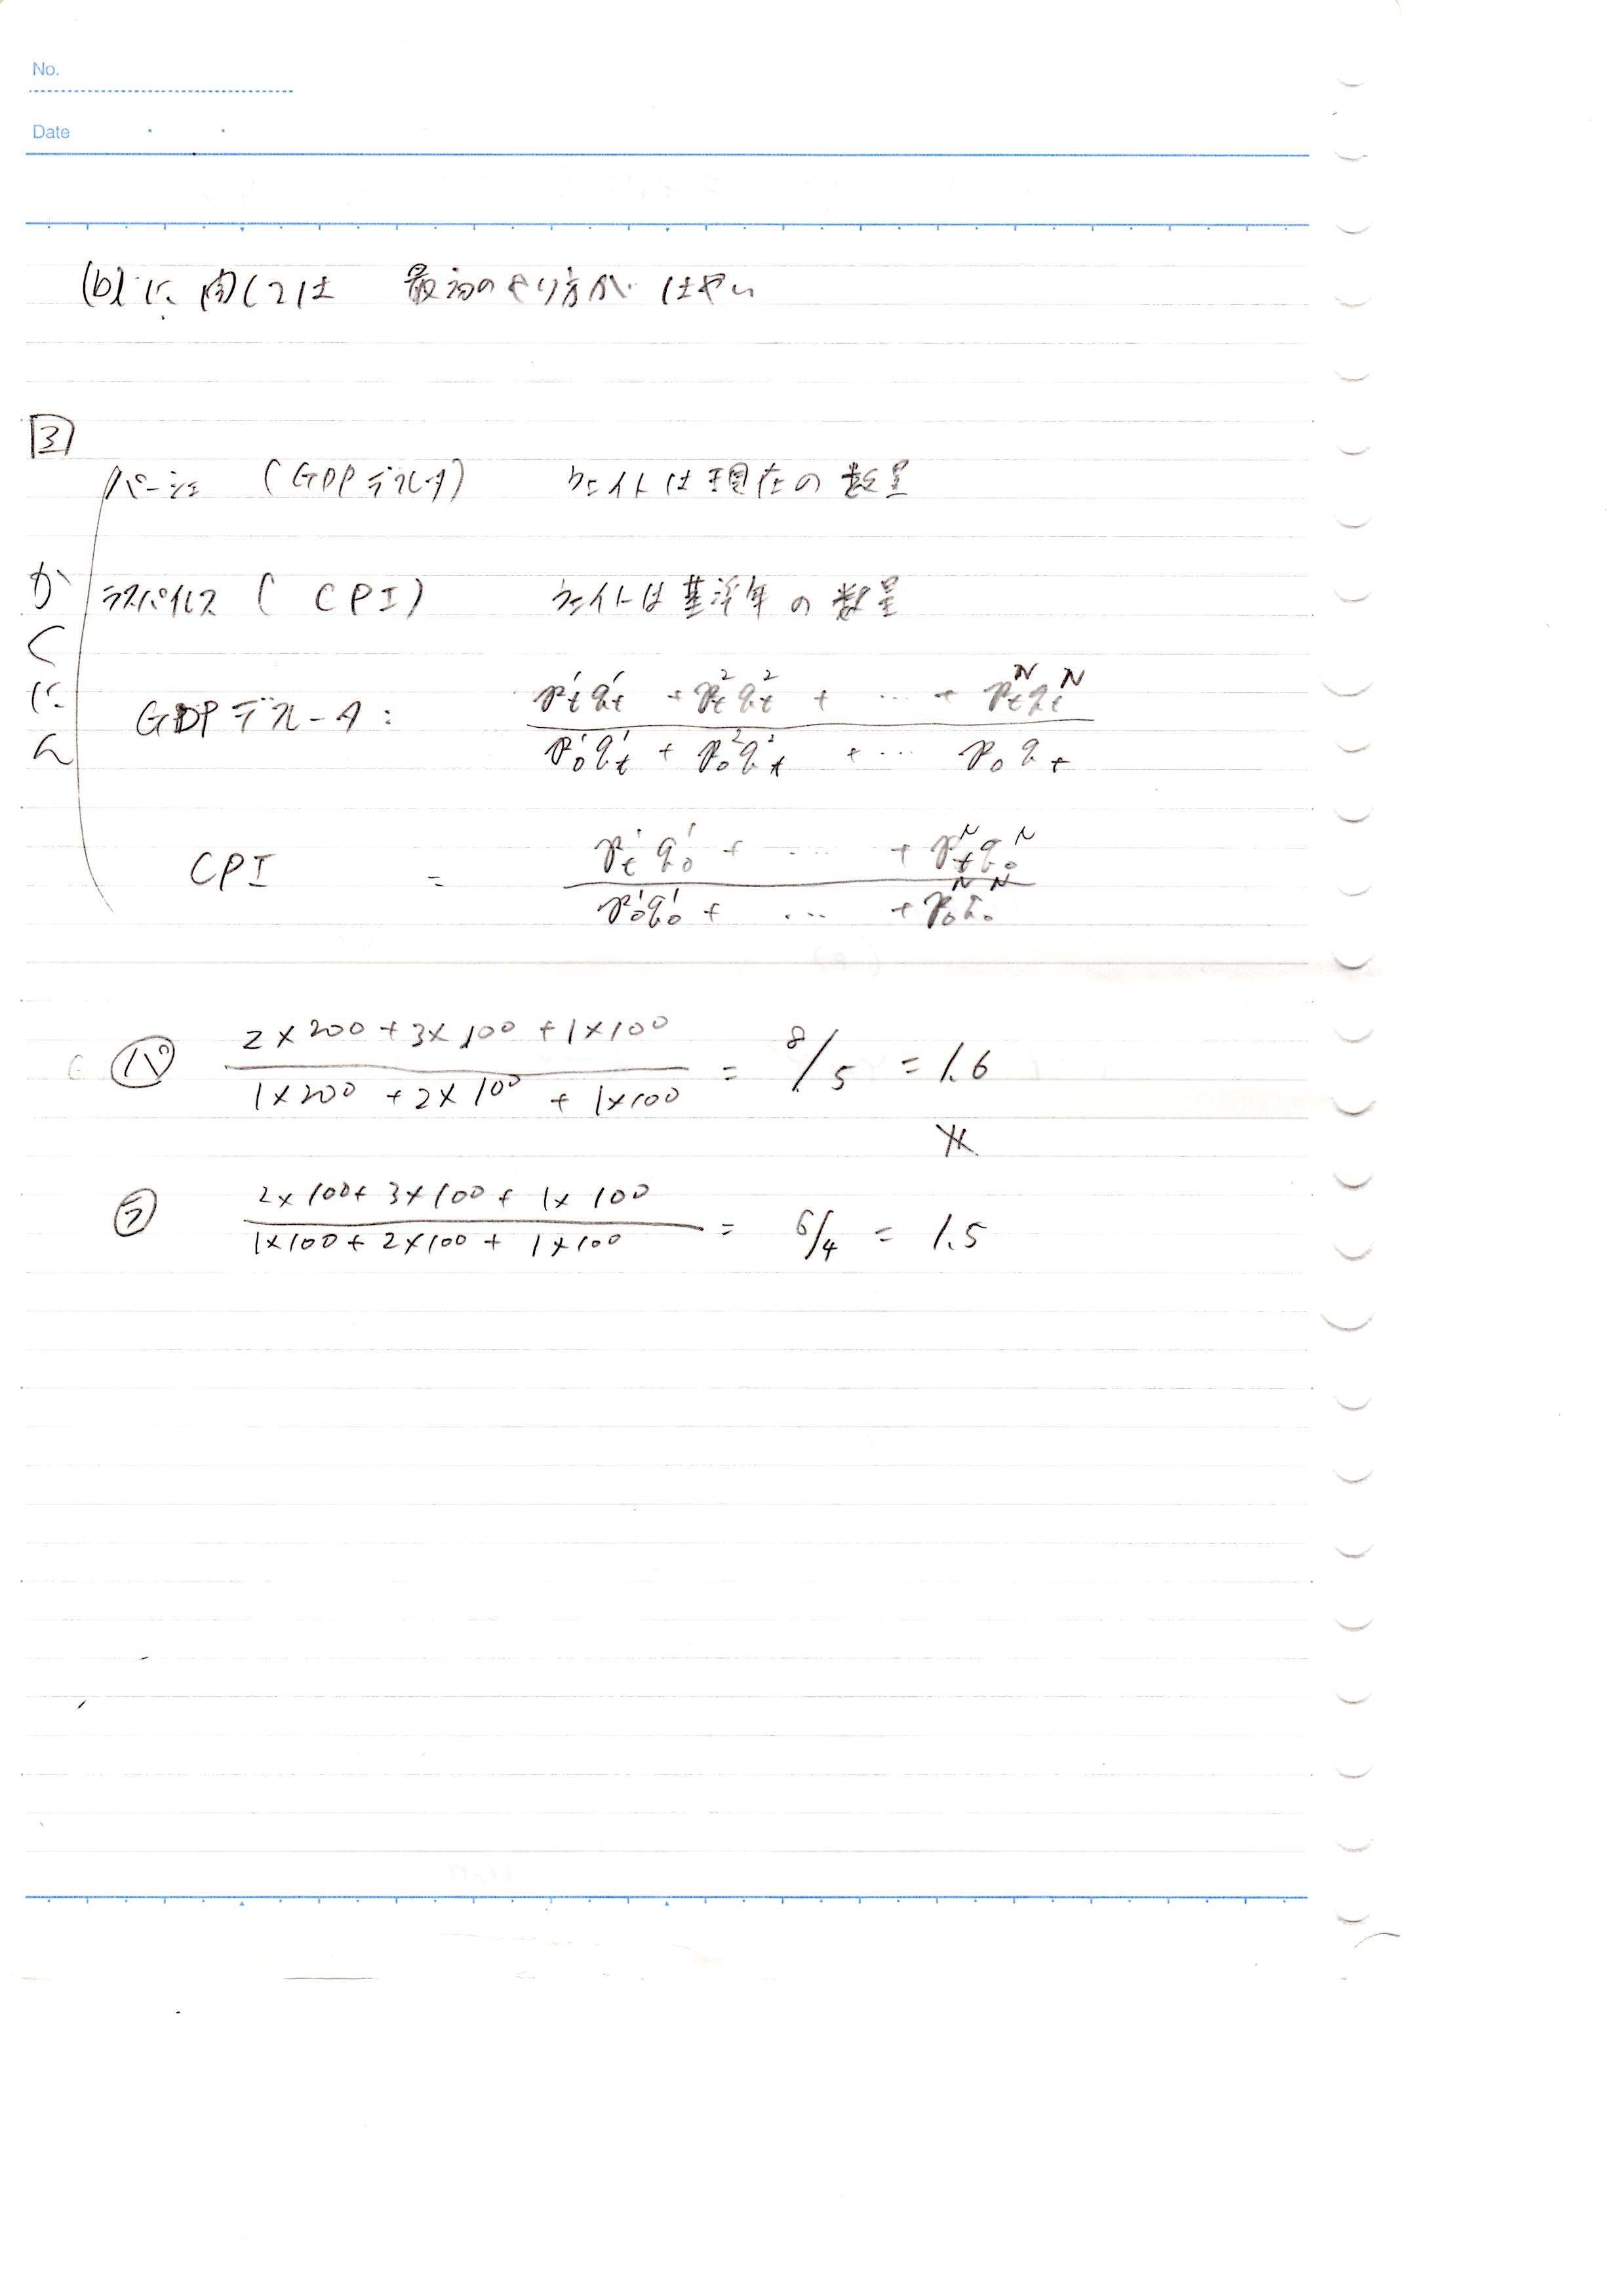 No.
Date
(b)に関しては 最初のやり方が はやい
3
パーシェ (GDPデフレータ) ウェイトは現在の数量
かくにん
ラスパイルス ( CPI) ウェイトは基準年の数量
GDPデフレータ: \frac{p_t^1 q_t^1 + p_t^2 q_t^2 + … + p_t^N q_t^N}{p_0^1 q_t^1 + p_0^2 q_t^2 + … p_0 q_t}
CPI = \frac{p_t^1 q_0^1 + … + p_t^N q_0^N}{p_0^1 q_0^1 + … + p_0^N q_0^N}
パ \frac{2×200+3×100+1×100}{1×200+2×100+1×100} = 8/5 = 1.6
※
ラ \frac{2×100+3×100+1×100}{1×100+2×100+1×100} = 6/4 = 1.5